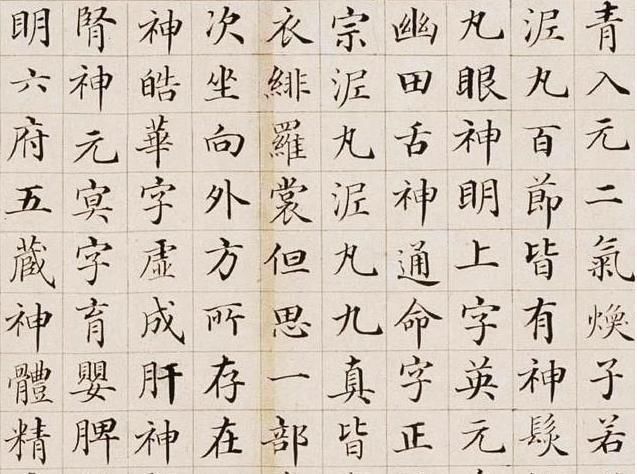 青入元二氣煥子若
泥丸百節皆有神髮
丸眼神明上字英元
幽田舌神通命字正
宗泥丸泥丸九真皆
衣緋羅裳但思一部
次坐向外方所存在
神皓華字虛成肝神
腎神元冥字育嬰脾
明六府五藏神體精